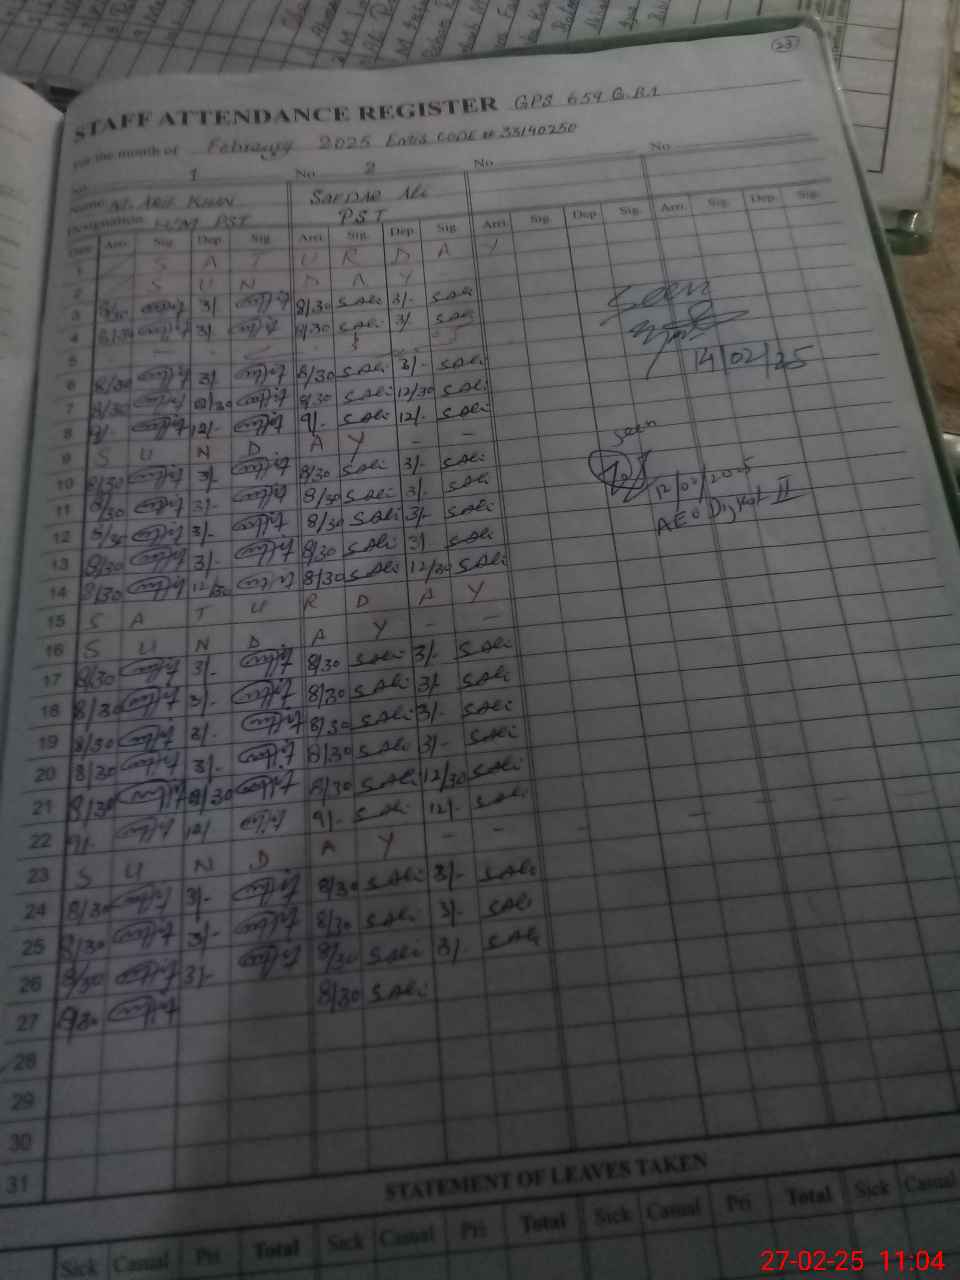 23
STAFF ATTENDANCE REGISTER GPS 659 G.B.1
For the month of February 2025 EMIS CODE # 33140250
No. 1 No. 2 No. No.
Name M. Arif Khan Safdar Ali
Designation PST PST
Date Arri. Sig. Dep. Sig. Arri. Sig. Dep. Sig. Arri. Sig. Dep. Sig. Arri. Sig. Dep. Sig.
1 S A T U R D A Y
2 S U N D A Y
3 8/30 3/- 8/30 S Ali 3/- S Ali
4 8/30 3/- 8/30 S Ali 3/- S Ali
5
6 8/30 3/- 8/30 S Ali 3/- S Ali
7 8/30 12/30 8/30 S Ali 12/30 S Ali
8 9/- 12/- 9/- S Ali 12/- S Ali
9 S U N D A Y - -
10 8/30 3/- 8/30 S Ali 3/- S Ali
11 8/30 3/- 8/30 S Ali 3/- S Ali
12 8/30 3/- 8/30 S Ali 3/- S Ali
13 8/30 3/- 8/30 S Ali 3/- S Ali
14 8/30 12/30 8/30 S Ali 12/30 S Ali
15 S A T U R D A Y
16 S U N D A Y - -
17 8/30 3/- 8/30 S Ali 3/- S Ali
18 8/30 3/- 8/30 S Ali 3/- S Ali
19 8/30 3/- 8/30 S Ali 3/- S Ali
20 8/30 3/- 8/30 S Ali 3/- S Ali
21 8/30 12/30 8/30 S Ali 12/30 S Ali
22 9/- 12/ 9/- S Ali 12/- S Ali
23 S U N D A Y - - - - - - -
24 8/30 3/- 8/30 S Ali 3/- S Ali
25 8/30 3/- 8/30 S Ali 3/- S Ali
26 8/30 3/- 8/30 S Ali 3/- S Ali
27 8/30 8/30 S Ali
28
29
30
31
Seen
14/02/25
Seen
12/02/2025
AEO Dijkot II
STATEMENT OF LEAVES TAKEN
Sick Casual Pri Total Sick Casual Pri Total Sick Casual Pri Total Sick Casual
27-02-25 11:04